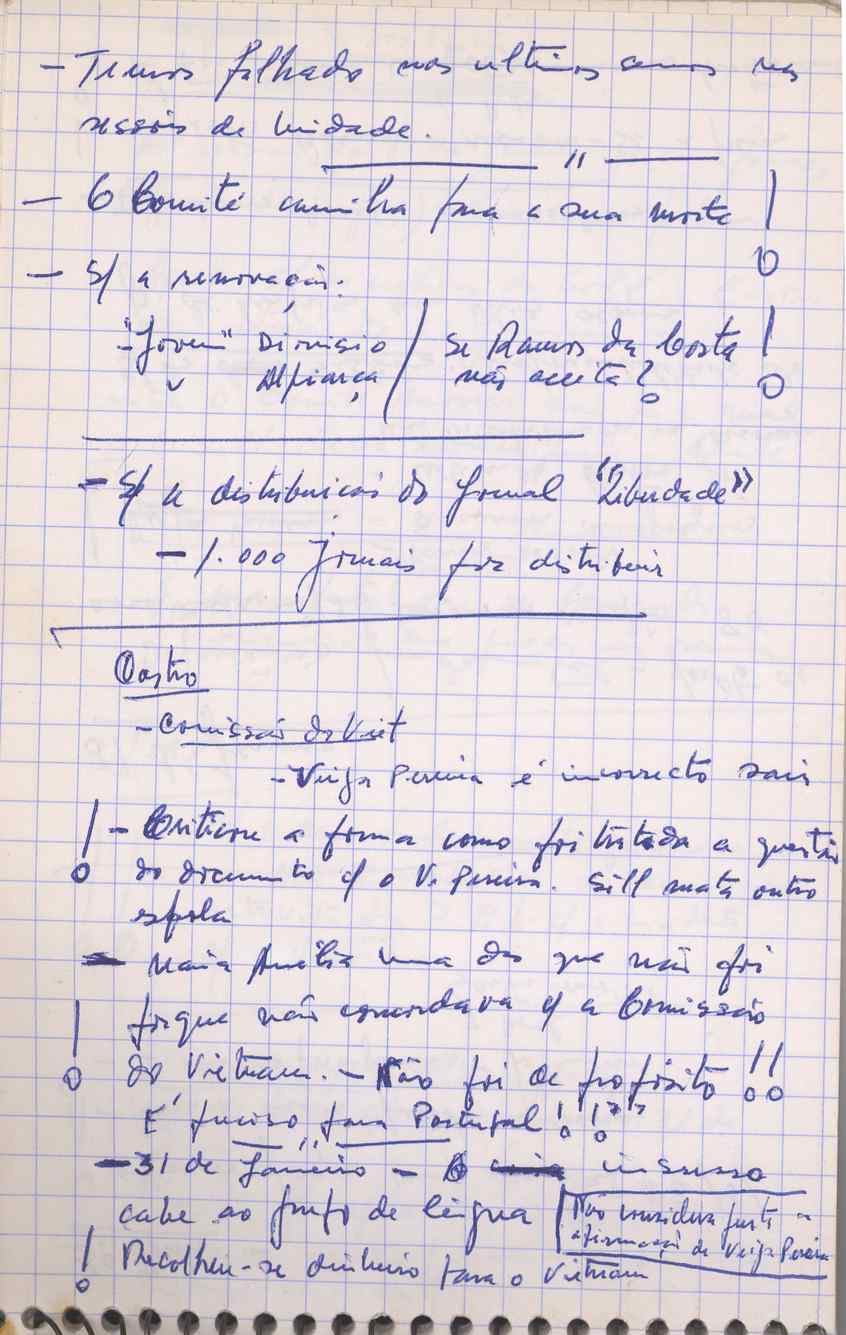 - Temos falhado nos ultimos anos nas
sessões de Unidade.
"
- O Comité caminha para a sua morte !
- S/ a renovação:
- "Jovem" Dionisio / Se Ramos da Costa !
" Alpiarça / não aceita?
- S/ a distribuição do Jornal "Liberdade"
- 1.000 Jornais por distribuir
Castro
- Comissão do Viet
- Veiga Pereira é incorrecto sair
! - Criticou a forma como foi tratada a questão
do documento c/ o V. Pereira. Sill mata outro
espola
- Maria Amélia uma das que não foi
! porque não concordava c/ a Comissão
do Vietnam. - Não foi de propósito !!
É preciso para Portugal !!??
- 31 de Janeiro - O insucesso
cabe ao grupo de língua
Não considera justa a
afirmação de Veiga Pereira
! Recolheu-se dinheiro para o Vietnam